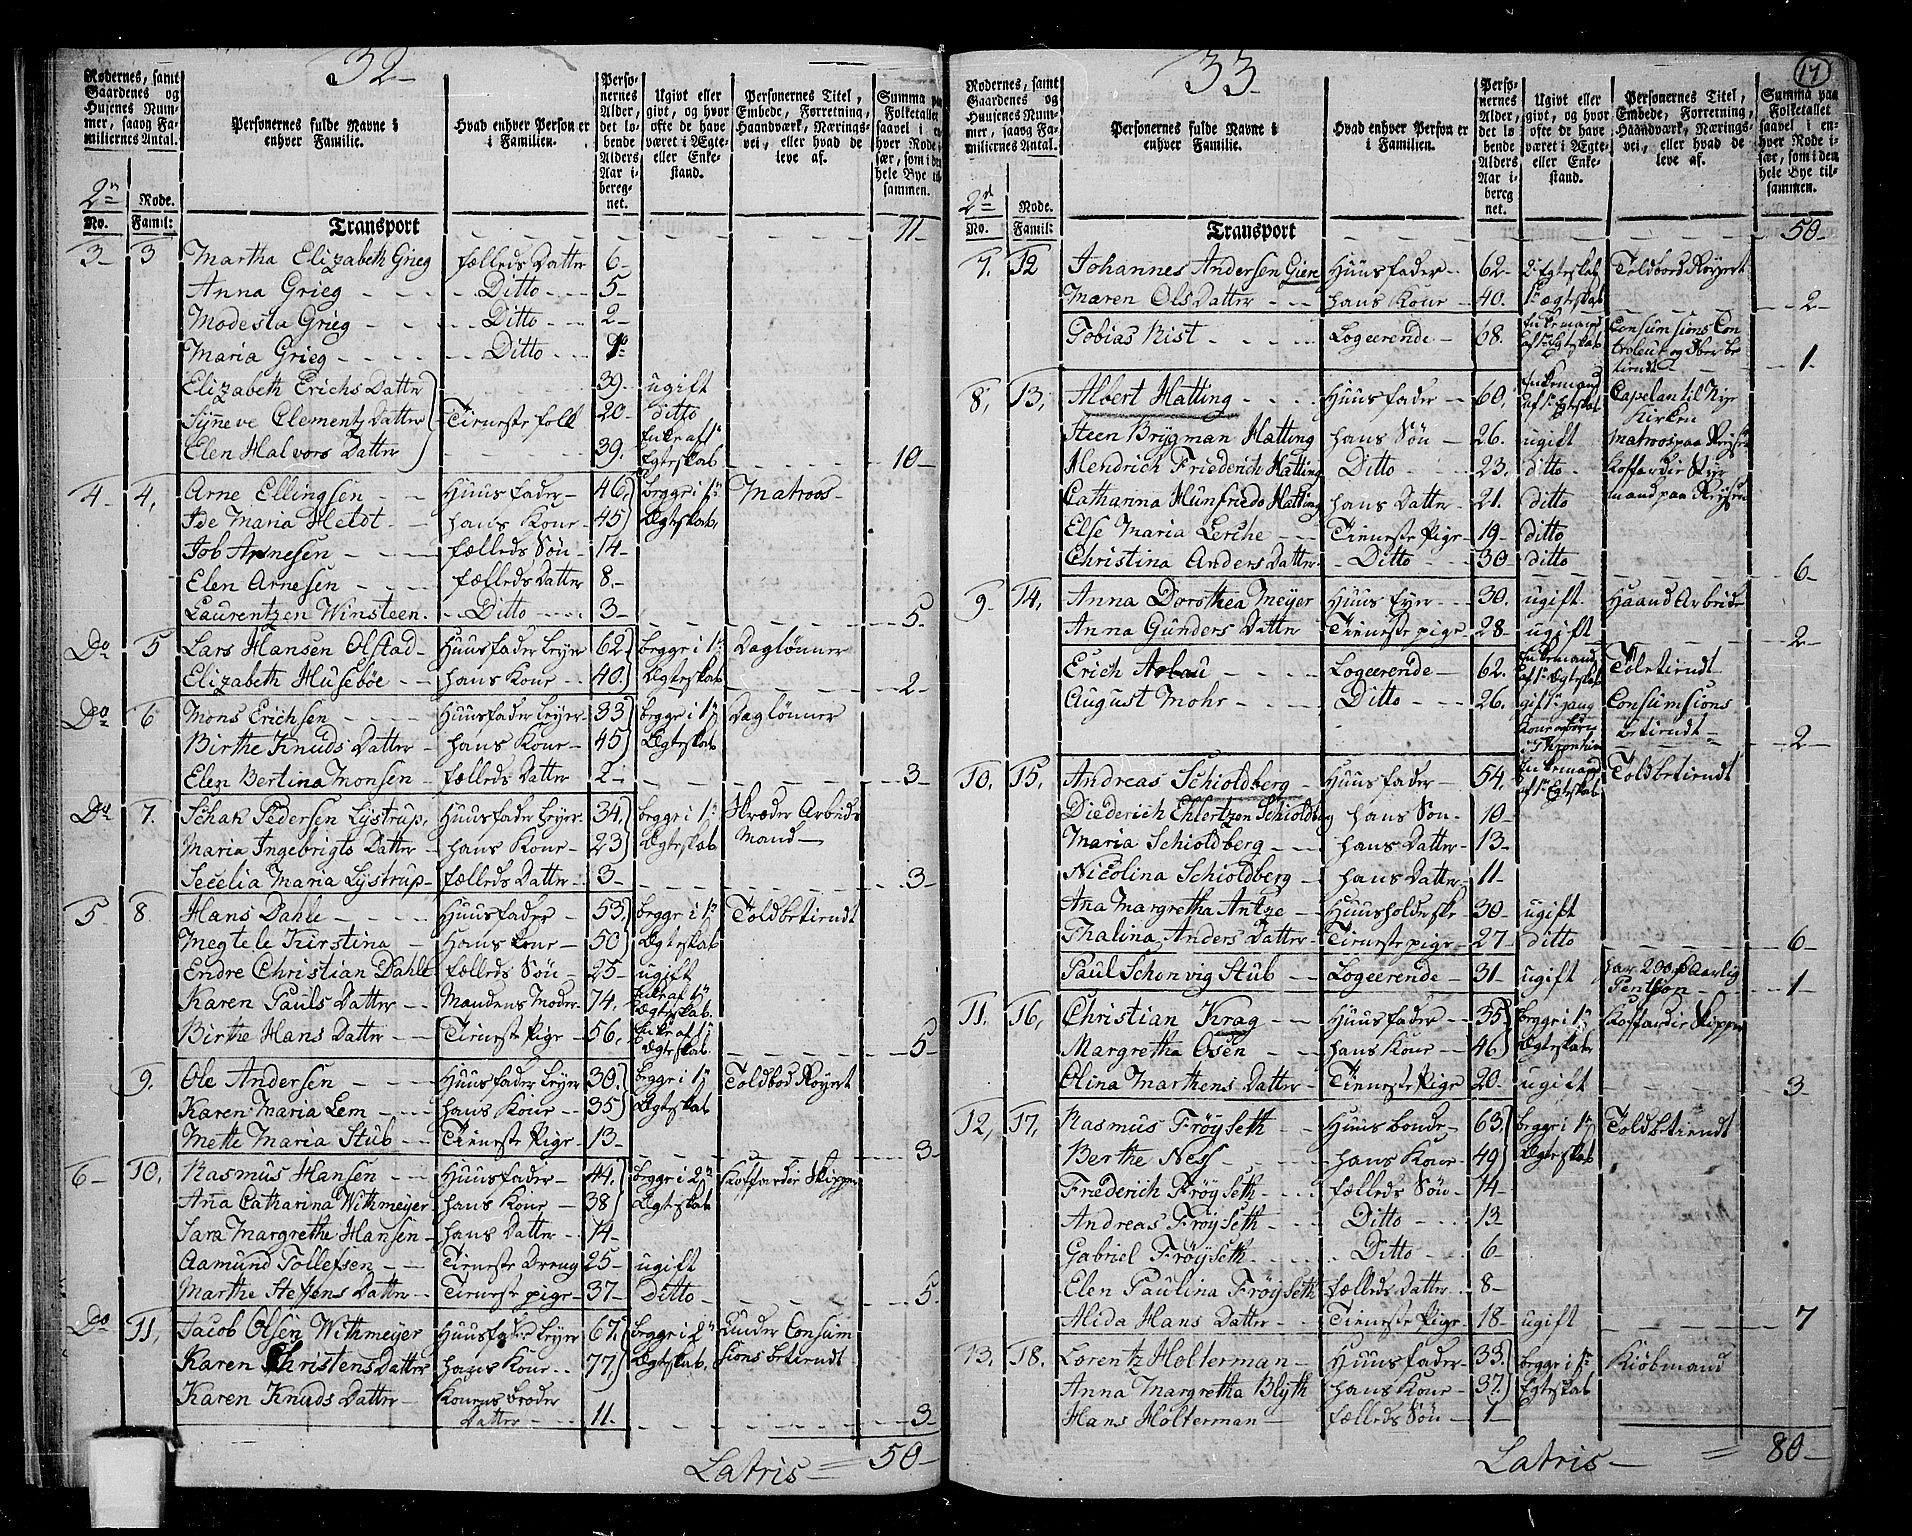 32
Rodernes, samt Gaardenes og Husenes Nummer, saavg Familiernes Antal.
Personernes fulde Navne i enhver Familie.
Hvad enhver Person er i Familien.
Personernes Alder, det løbende Alders Aar iberegnet.
Ugivt eller givt, og hvor ofte de have været i Ægte- eller Enkestand.
Personernes Titel, Embede, Forretning, Haandværk, Næringsvei, eller hvad de leve af.
Summa paa Folketallet saavel i enhver Rode især, som i den hele Bye tilsammen.
2n Rode.
No. Famil:
Transport 11
3 3 Martha Elizabeth Grieg fælleds Datter 6
Anna Grieg Ditto 5
Modesta Grieg Ditto 2
Maria Grieg Ditto
Elizabeth Erichs Datter 39. ugift
Syneve Clementz Datter Tieneste folk 20 ditto
Elen Halvors Datter 39. Enke af 1t Egteskab 10
4 4, Arne Ellingsen Huusfader 46, begge i 1t Matros
Ide Maria Heldt hans Kone 45 Ægteskab,
Job Arnesen fælleds Søn 14
Elen Arnesen fælleds Datter 8.
Laurentzen Winsteen Ditto 3 5.
Do 5 Lars Hansen Olstad Huusfader Leyer 62 begge i 1t Daglønner
Elizabeth Husebøe hans Kone 40 Ægteskab 2
Do 6 Mons Erichsen Huusfader Leyer 33 begge i 1t Daglønner
Birthe Knuds Datter hans Kone 45 Ægteskab
Elen Bertina Monsen fælleds Datter 2 3
Do 7. Schak Pedersen Lystrup, Huusfader Leyer 34, begge i 1t Skræder Arbeids
Maria Ingebrigts Datter hans Kone 23 Ægteskab Mand
Secelia Maria Lystrup fælleds Datter 3 3
5 8. Hans Dahle Huusfader 53. begge i 1t Toldbetiendt
Megtele Kirstina Hans Kone 50 Ægteskab
Endre Christian Dahle fælleds Søn 25 ugift
Karen Pauls Datter Mandens Moder 74, Enke af 1t Ægteskab.
Birthe Hans Datter Tieneste Pige 56, Enke af 1t Ægteskab 5
9. Ole Andersen Huusfader Leyer 30. begge i 1t Toldbod Røyert
Karen Maria Lem hans Kone 35 Ægteskab
Mette Maria Stub Tieneste Pige 13 3
6 10, Rasmus Hansen Huusfader 44, begge i 2t Koffardie Skipper
Ana Catharina Withmeyer hans Kone 38 Ægteskab
Sara Margrethe Hansen hans Datter 14
Aamund Tollefsen Tieneste Dreng 25 ugift
Marthe Steffens Datter Tieneste pige 37 Ditto 5
Do 11, Jacob Olsen Withmeyer Huusfader Leyer 67, begge i 2t Under Consum
Karen Christens Datter hans Kone 77, Ægteskab. sions betiendt
Karen Knuds Datter Konens broder
Datter 11. 3
Latris 50
33
17
Rodernes, samt Gaardenes og Huusenes Nummer, saavg Familiernes Antal.
Personernes fulde Navne i enhver Familie.
Hvad enhver Person er i Familien.
Personernes Alder, det løbende Alders Aar iberegnet.
Ugivt eller givt, og hvor ofte de have været i Ægte- eller Enkestand.
Personernes Titel, Embede, Forretning, Haandværk, Næringsvei, eller hvad de leve af.
Summa paa Folketallet saavel i enhver Rode især, som i den hele Bye tilsammen.
2d Rode.
No. Famil:
Transport 50
7. 12 Johannes Andersen Gien Huusfader 62 2t Egteskab Toldbord Røyert
Maren Ols Datter hans Kone 40. 1t Ægteskab 2
Tobias Rist Logeerende 68. Enkemand af 1t Egteskab Consumsions Controleur og Ober betiendt 1
8, 13, Albert Hatting Huusfader 60, Enkemand af 1t Egteskab Capelan til Nye Kirken
Steen Brygman Hatting hans Søn 26. ugift Matros paa Reysen
Hendrich Friederich Hatting Ditto 23. ditto Koffardie Styr
Catharina Hunfriedo Hatting hans Datter 21. ditto mand paa Reysen
Else Maria Lerche Tieneste Pige 19 ditto
Christina Anders Datter Ditto 30 ditto 6
9. 14, Anna Dorothea Meyer Huus Eyer 30. ugift. Haand Arbeide
Anna Gunders Datter Tieneste pige 28 ugift 2
Erich Aabau Logeerende 62. Enkemand af 1t Ægteskab Toletiendt
August Mohr Ditto 26. gift 1t gang Consumsions betiendt 2
10, 15, Andreas Schioldberg Huusfader 54, Enkemand af 1t Egteskab Toldbetiendt
Diederich Ehlertzen Schioldberg hans Søn 10
Maria Schioldberg hans Datter 13
Nicolina Schioldberg hans Datter 11
Ana Margretha Antze Huusholderske 30 ugift
Thalina Anders Datter Tieneste pige 27 ditto 6
Paul Schonvig Stub Logeerende 31 ugift har 200 Aarlig Pention 1
11, 16, Christian Krag Huusfader 35 begge i 1t Koffardie Skipper
Margretha Osen hans Kone 46 Ægteskab
Olina Marthens Datter Tieneste Pige 20 ugift 3
12, 17, Rasmus Frøyseth Huusbonde 63, begge i 1t Toldbetiendt
Berthe Ness hans Kone 49 Ægteskab
Friederich Frøyseth fælleds Søn 14
Andreas Frøyseth Ditto 13
Gabriel Frøyseth Ditto 6
Elen Paulina Frøyseth fælleds Datter 8
Alida Hans Datter Tieneste Pige 18 ugift 7
13. 18. Lorentz Holterman Huusfader 33 begge i 1t Kiøbmand
Anna Margretha Blyth hans Kone 37 Egteskab
Hans Holterman fælleds Søn 1
Latris 80